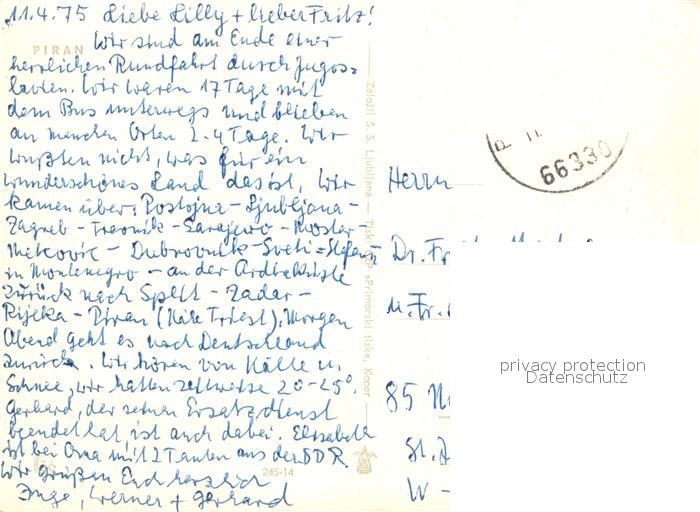 11.4.75 Liebe Lilly + lieber Fritz!
PIRAN
Wir sind am Ende einer
herrlichen Rundfahrt durch Jugos=
lavien. Wir waren 17 Tage mit
dem Bus unterwegs und blieben
an manchen Orten 2-4 Tage. Wir
wußten nicht, was für ein
wunderschönes Land das ist. Wir
kamen über: Postojna - Ljubljana -
Zagreb - Travnik - Sarajewo - Mostar -
Metcovic - Dubrovnik - Sveti = Stefan
in Montenegro - an der Adriaküste
zurück nach Split - Zadar -
Rijeka - Piran (Nähe Triest), Morgen
Abend geht es nach Deutschland
zurück. Wir hören von Kälte u.
Schnee, wir hatten zeitweise 20-25°.
Gerhard, der seinen Ersatzdienst
beendet hat, ist auch dabei. Elisabeth
ist bei Oma mit 2 Tanten aus der DDR.
Wir grüßen Euch herzlich
Inge, Werner + Gerhard
Založil S. S. Ljubljana — Tisk ČP »Primorski tisk«, Koper
245-14
66330
Herrn
Dr. Fr
u. Fr.
85 N
St.
W -
privacy protection
Datenschutz